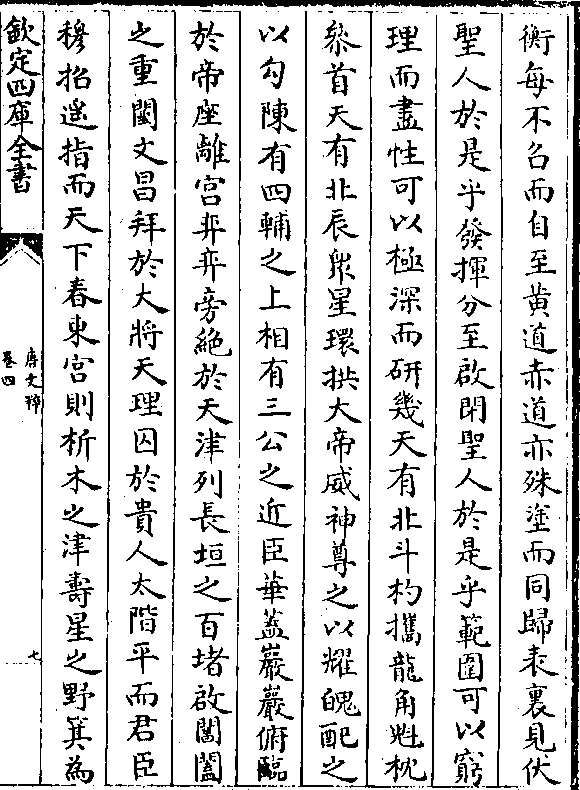 衡每不召而自至黄道赤道亦殊塗而同歸表裏見伏
聖人於是乎發揮分至啟閉聖人於是乎範圍可以窮
理而盡性可以極深而研幾天有北斗杓攜龍角魁枕
叅首天有北辰衆星環拱大帝威神尊之以耀魄配之
以勾陳有四輔之上相有三公之近臣華蓋巖巖俯臨
於帝座離宮弈弈旁絶於天津列長垣之百堵啟閶闔
之重闉文昌拜於大將天理囚於貴人太階平而君臣
穆招遥指而天下春東宫則析木之津壽星之野箕為
欽定四庫全書
唐文粹
卷四
七